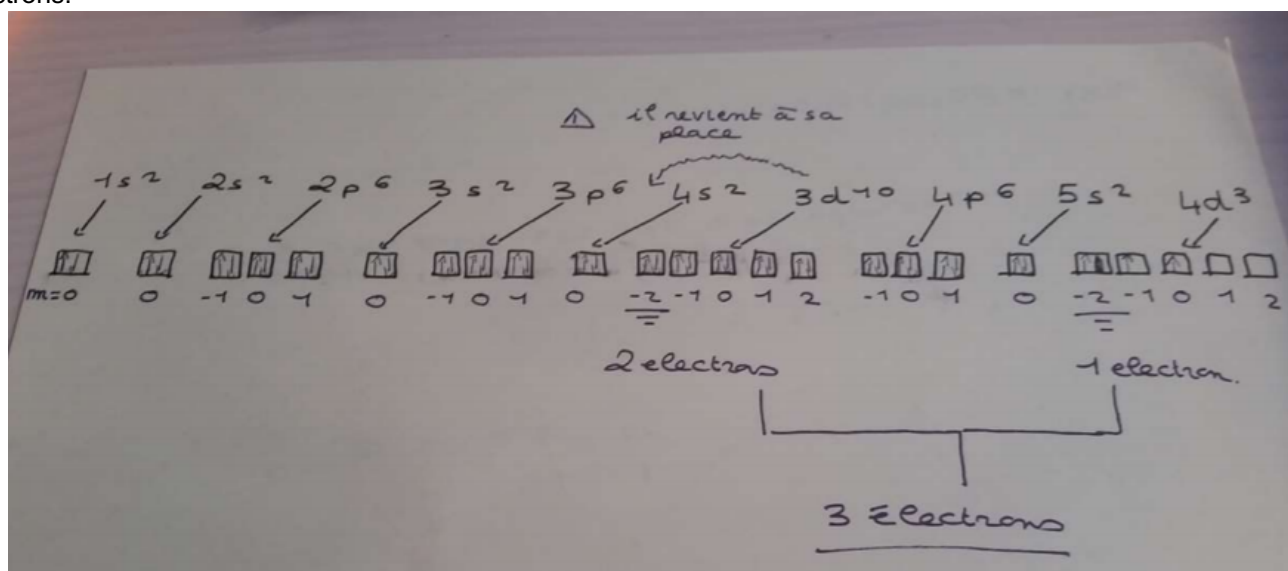 ctrons.
⚠ il revient à sa
place
1s² 2s² 2p⁶ 3s² 3p⁶ 4s² 3d¹⁰ 4p⁶ 5s² 4d³
m=0 0 -1 0 1 0 -1 0 1 0 -2 -1 0 1 2 -1 0 1 0 -2 -1 0 1 2
2 electrons 1 electron.
3 électrons